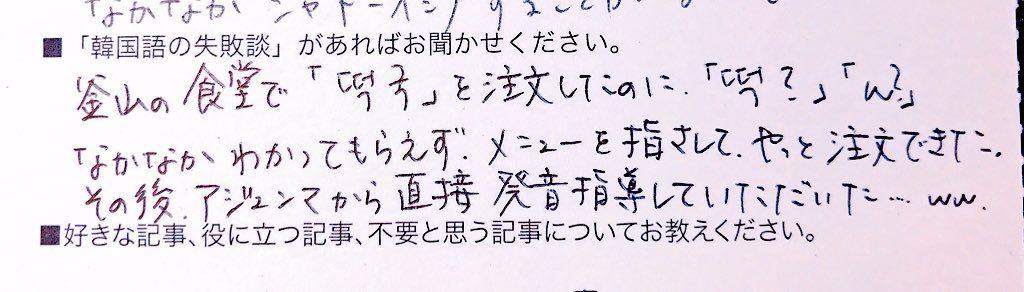 なかなかシャドーイングすることが
■「韓国語の失敗談」があればお聞かせください。
釜山の食堂で「떡국」と注文したのに、「떡?」「ん?」
なかなかわかってもらえず、メニューを指さして、やっと注文できた。
その後、アジュンマから直接発音指導していただいた… ww.
■好きな記事、役に立つ記事、不要と思う記事についてお教えください。